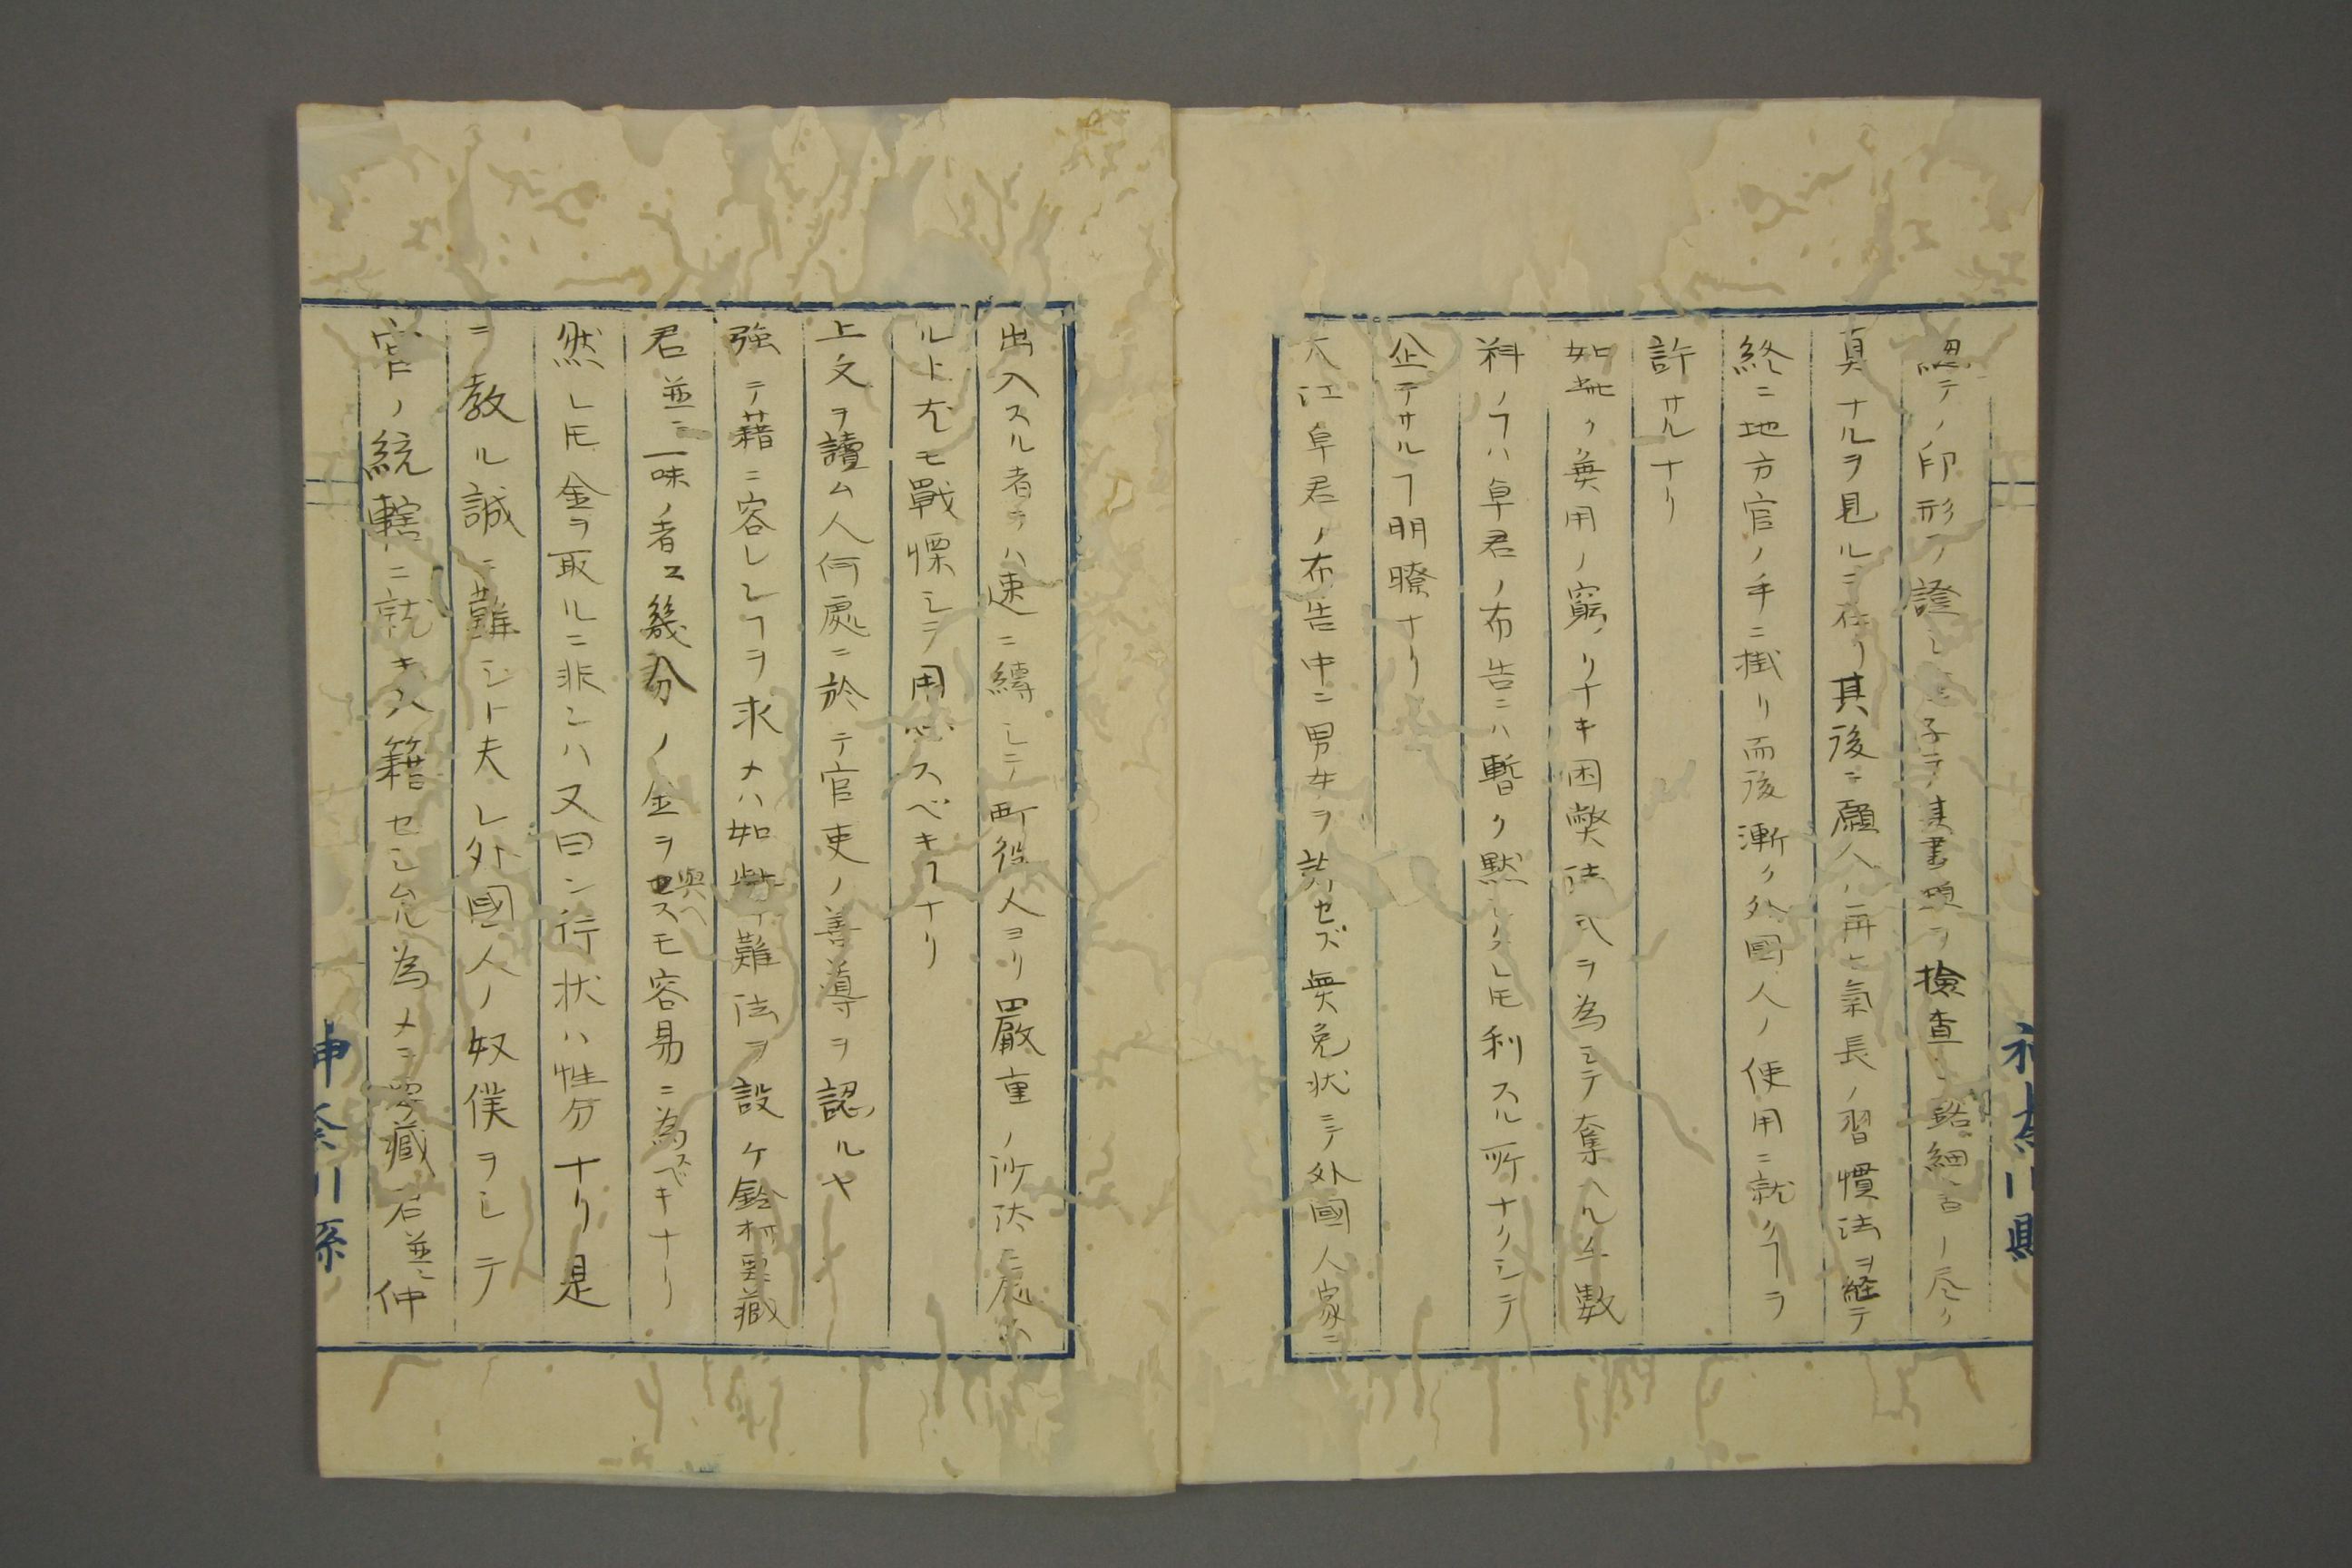 總テノ印形ノ證シ子テ其書題ヲ檢査シ詺細ノ尽ク
真ナルヲ見ルニ在リ其後ニ願人ハ再ヒ氣長ノ習慣法ヲ経テ
終ニ地方官ノ手ニ掛リ而後漸ク外國人ノ使用ニ就クヿヲ
許サルナリ
如此ク無用ノ窮リナキ困弊法式ヲ為シテ奪ヘル半數
料ノヿハ阜君ノ布告ニハ暫ク黙シタレ𪜈利スル所ナクシテ
企テサルヿ明瞭ナリ
大江阜君ノ布告中ニ男女ヲ説セズ無免状ニテ外國人家ニ
出入スル者ヲハ速ニ縛シテ町役人ヨリ嚴重ノ沙汰ニ處
ルト尤モ戰慄シテ用心スベキヿナリ
上文ヲ讀ム人何處ニ於テ官吏ノ善導ヲ認ルヤ
強テ藉ニ容レンヿヲ求メハ如此キ難法ヲ設ケ鈴村要藏
君並ニ一味ノ者エ幾分ノ金ヲ與ヘスモ容易ニ為スベキナリ
然レ𪜈金ヲ取ルニ非ンハ又曰ン行状ハ性分ナリ是
ニ教ル誠ニ難シト夫レ外國人ノ奴僕ヲシテ
官ノ統轄ニ就キ入籍セシム為メニ要藏君並ニ仲
神奈川縣